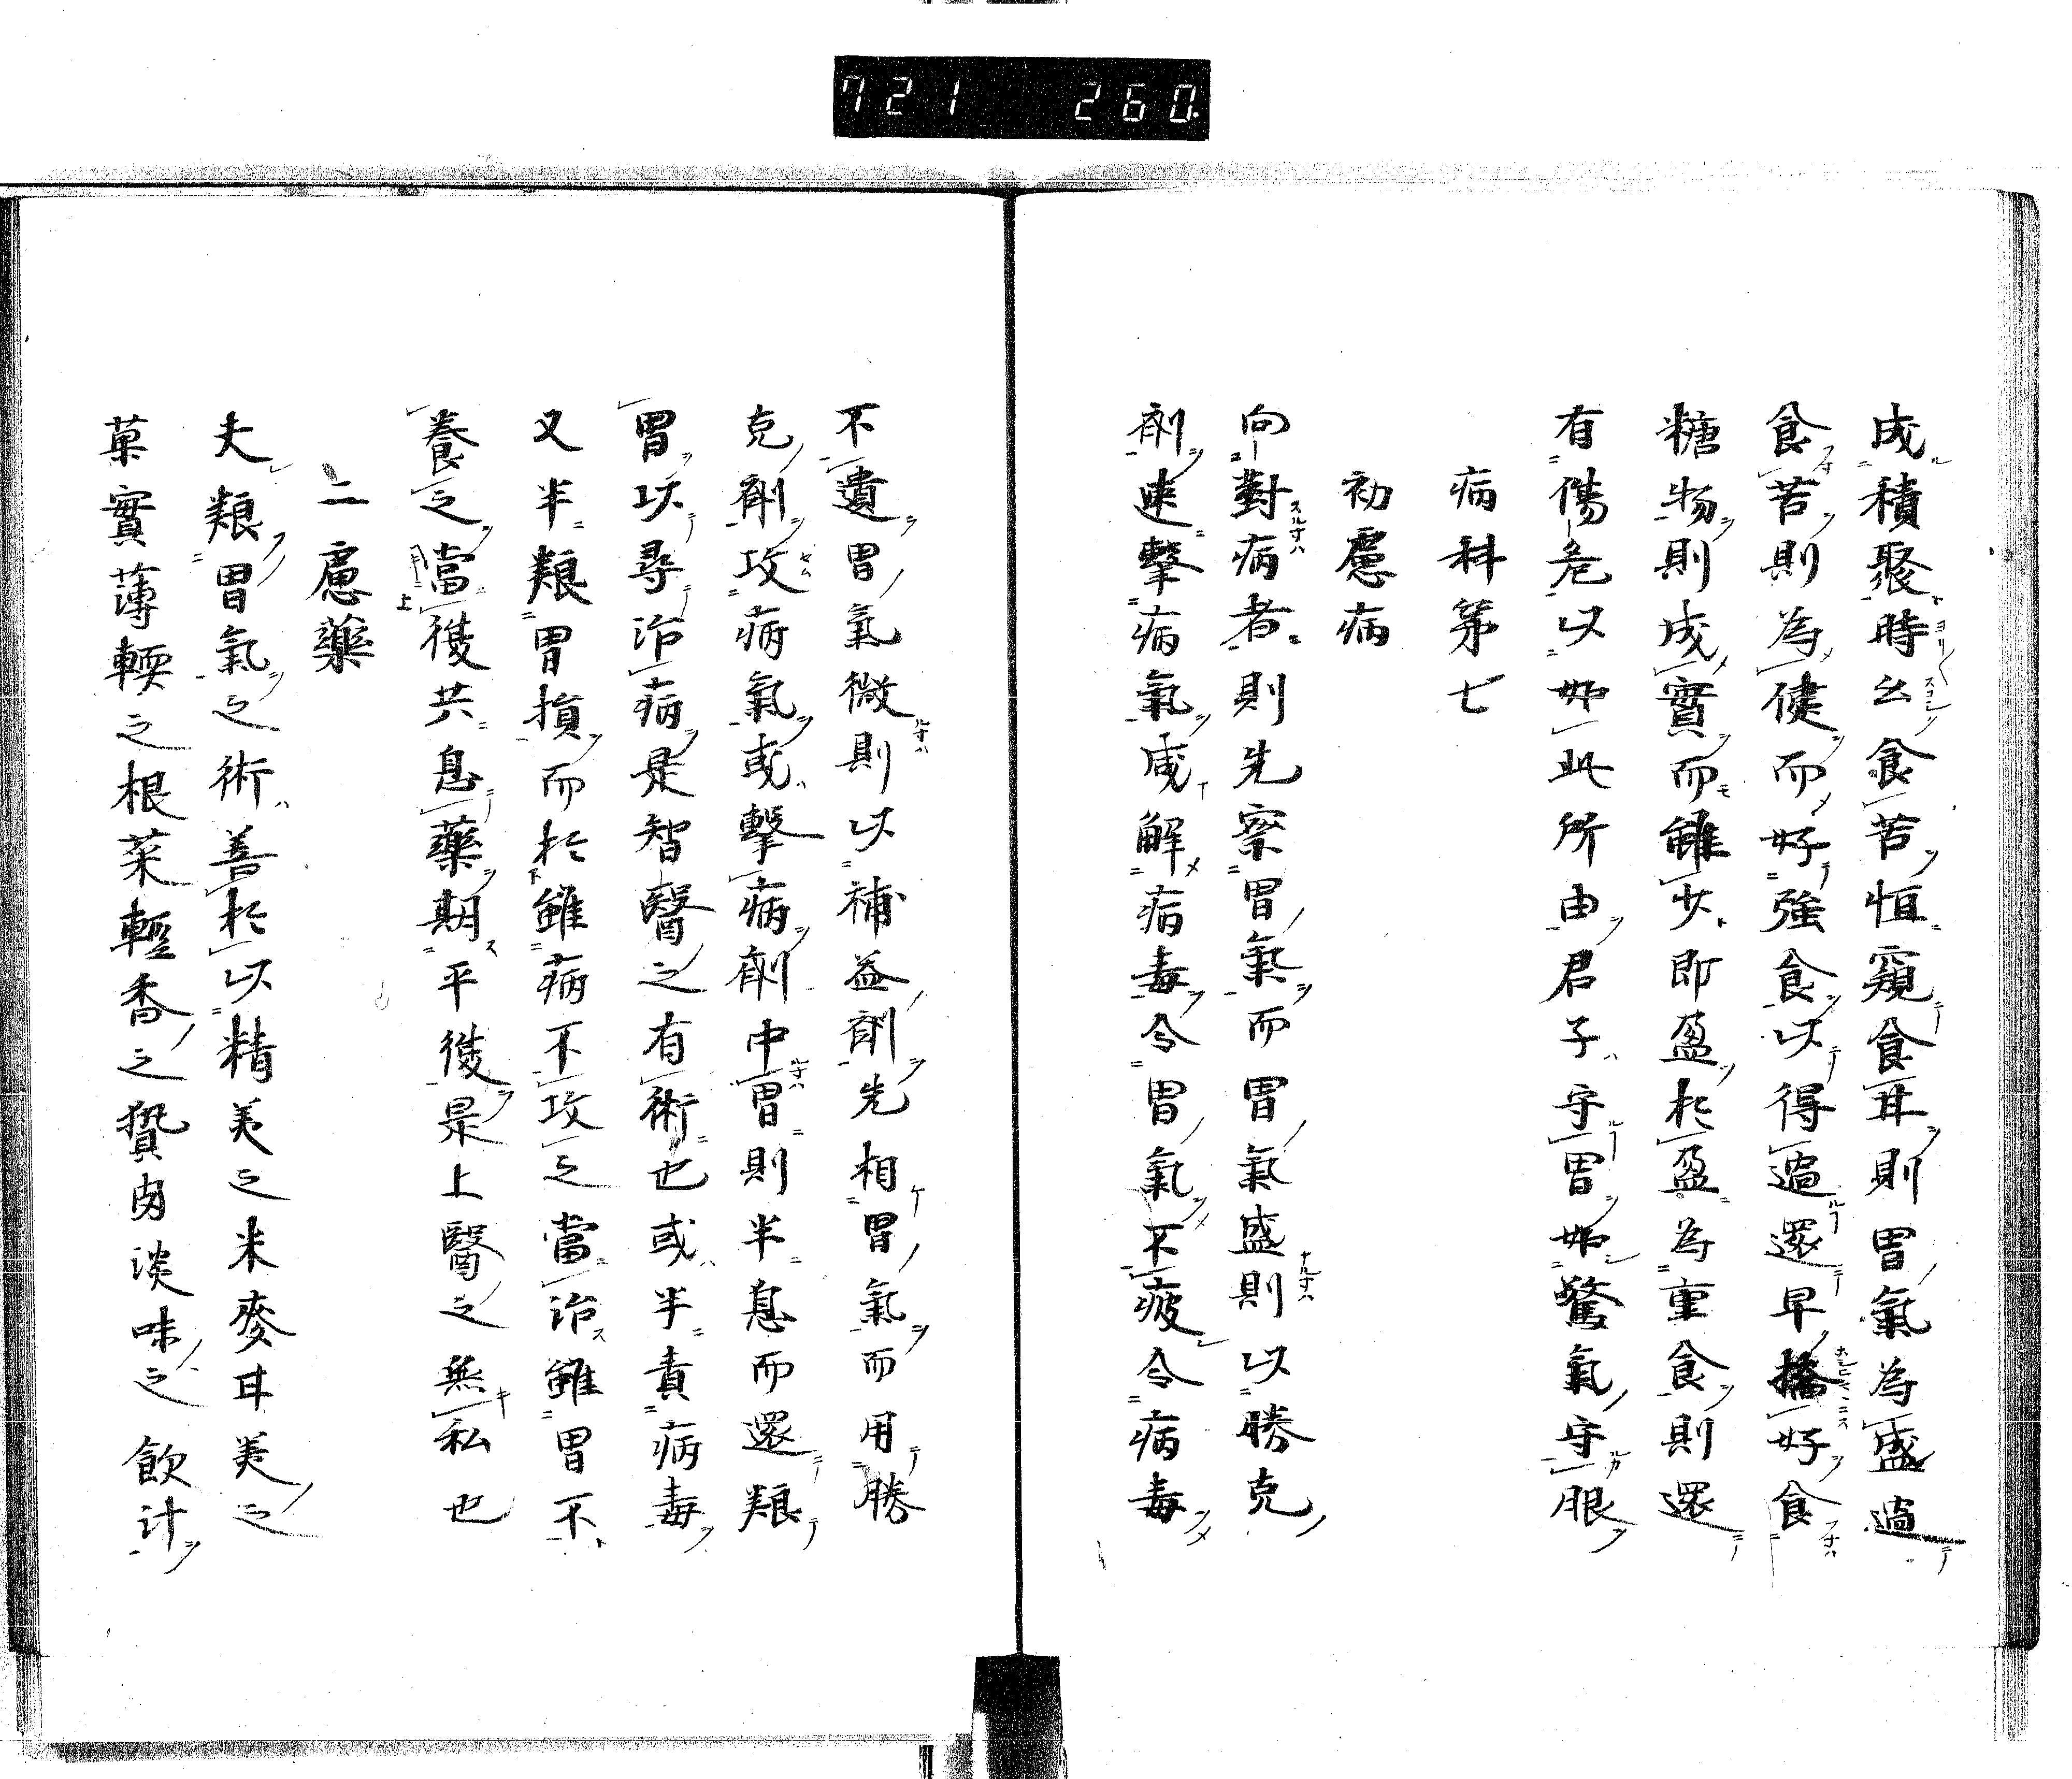 721 260
成積聚時么食苦恒窺食甘則胃氣為盛過
食苦則為健而好強食以得過還早擕好食
糖物則成實而雖少即盈於盈為重食則還
有傷危以如此所由君子守胃如驚氣守眼
病科第七
初慮病
向對病者則先察胃氣而胃氣盛則以勝克
劑速擊病氣咸解病毒令胃氣不疲令病毒
不遺胃氣微則以補益劑先相胃氣而用勝
克劑攻病氣或擊病劑中胃則半息而還粮
胃以尋治病是智醫之有術也或半責病毒
又半粮胃損而於雖病不攻之當治雖胃不
養之當復共息藥期平復是上醫之無私也
二慮藥
夫粮胃氣之術善於以精美之米麥甘美之
菓實薄輭之根菜輕香之贄肉淡味之飲汁